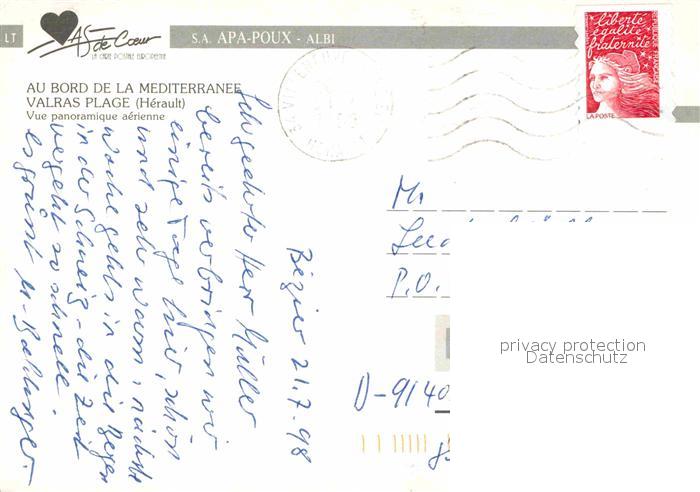 LT
AS de Cœur
LA CARTE POSTALE EUROPEENNE
S.A. APA-POUX - ALBI
AU BORD DE LA MEDITERRANEE
VALRAS PLAGE (Hérault)
Vue panoramique aérienne
liberté
égalité
fraternité
LA POSTE
Bézier 21.7.98
Sehr geehrter Herr Müller
bereits verbringen wir
einige Tage hier, schön
und sehr warm, nächste
Woche gehts in die Bergen
in der Schweiz - die Zeit
vergeht so schnell.
es grüsst
P.O.
D-9140
privacy protection
Datenschutz